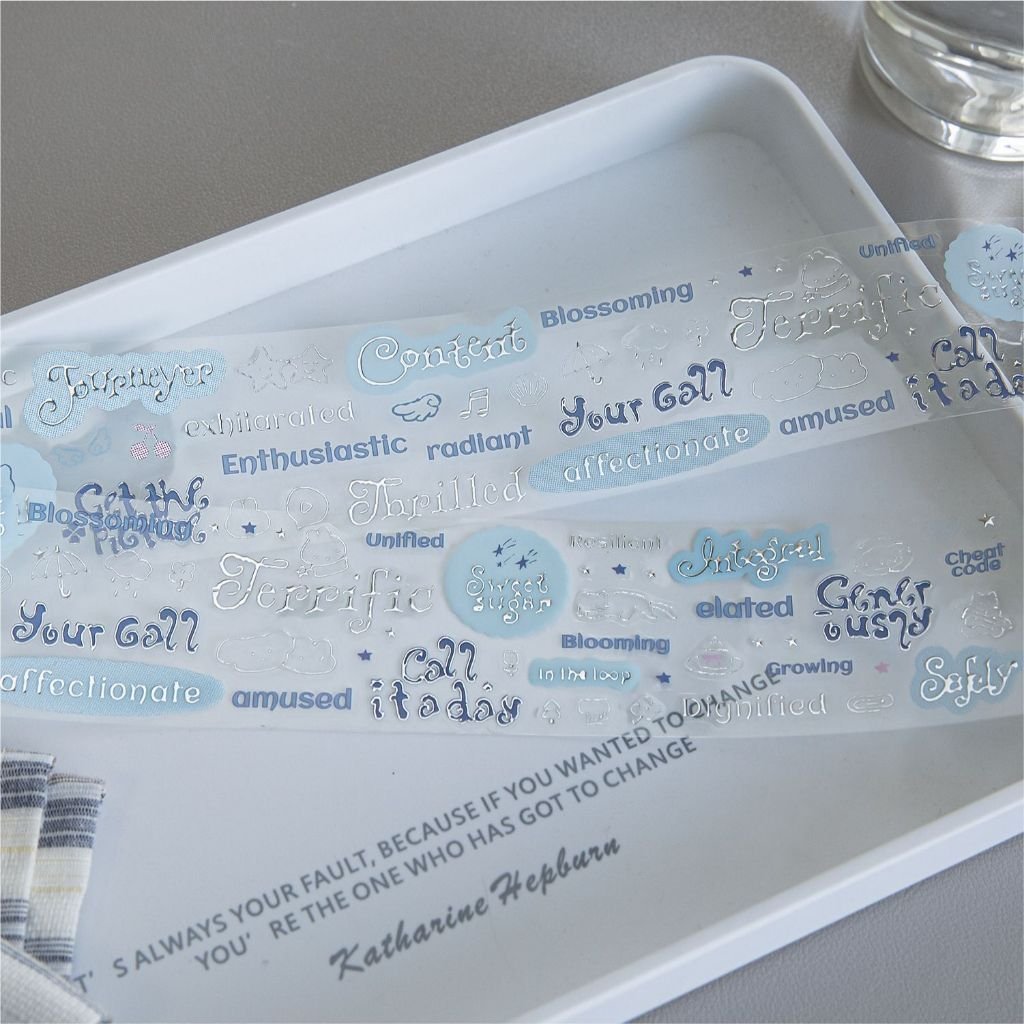 Unified
Sweet
sugar
Blossoming
Terrific
Content
Journeyer
Call
it a day
Your Gall
exhilarated
amused
radiant
Enthusiastic
affectionate
Thrilled
Get the
Picture
Blossoming
Unified
Resilient
Integral
Cheat
code
Terrific
Sweet
sugar
elated
Gener
ously
Your Gall
Blooming
Call
it a day
In the loop
Growing
Safely
affectionate
amused
Dignified
T'S ALWAYS YOUR FAULT, BECAUSE IF YOU WANTED TO CHANGE
YOU' RE THE ONE WHO HAS GOT TO CHANGE
Katharine Hepburn